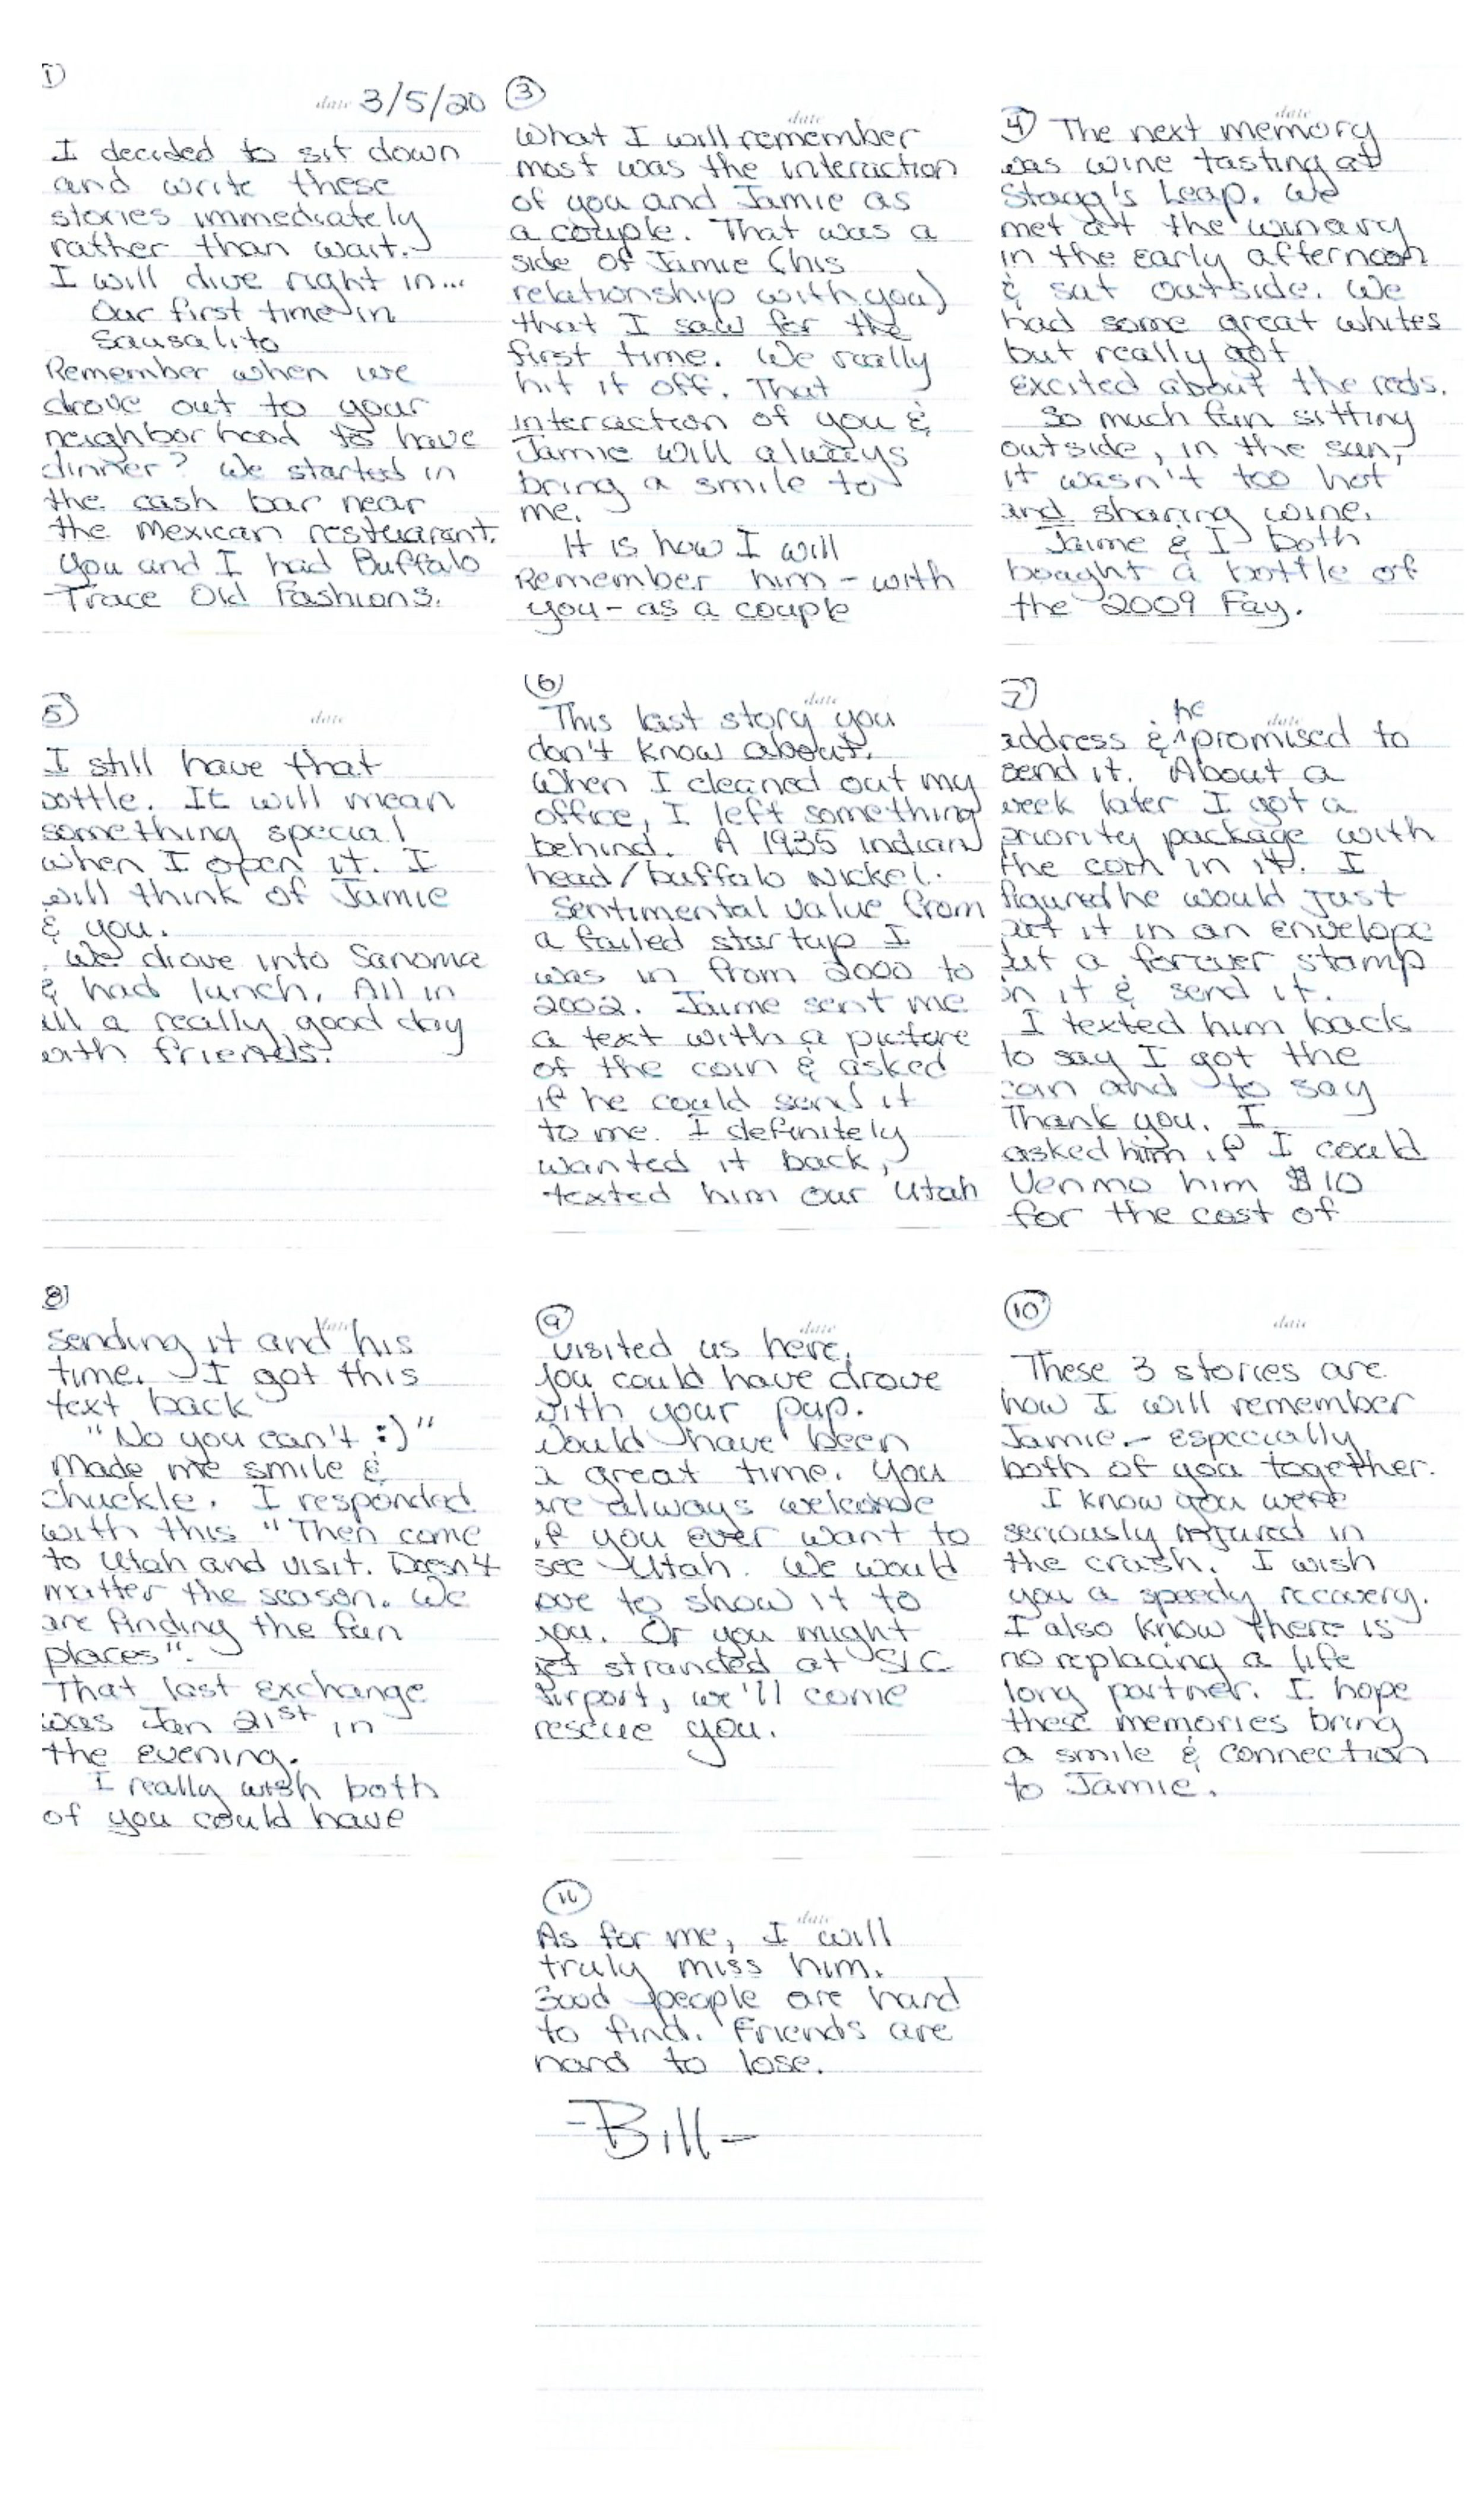 1)
date 3/5/20
I decided to sit down
and write these
stories immediately
rather than wait.
I will dive right in...
Our first time in
Sausalito
Remember when we
drove out to your
neighborhood to have
dinner? We started in
the cash bar near
the Mexican restuarant.
You and I had Buffalo
Trace Old Fashions.
3
date
What I will remember
most was the interaction
of you and Jamie as
a couple. That was a
side of Jamie (his
relationship with you)
that I saw for the
first time. We really
hit it off. That
interaction of you &
Jamie will always
bring a smile to
me.
It is how I will
Remember him - with
you - as a couple
date
4) The next memory
was wine tasting at
Stagg's Leap. We
met at the winary
in the early afternoon
& sat outside. We
had some great whites
but really got
excited about the reds.
So much fun sitting
outside, in the sun,
it wasn't too hot
and sharing wine.
Jaime & I both
bought a bottle of
the 2009 Fay.
5)
date
I still have that
bottle. It will mean
something special
when I open it. I
will think of Jamie
& you.
We drove into Sanoma
& had lunch. All in
all a really good day
with friends.
6
date
This last story you
don't know about.
When I cleaned out my
office, I left something
behind. A 1935 indian
head/buffalo Nickel.
Sentimental value from
a failed startup I
was in from 2000 to
2002. Jaime sent me
a text with a picture
of the coin & asked
if he could send it
to me. I definitely
wanted it back,
texted him our Utah
7)
date
address & ^he promised to
send it. About a
week later I got a
priority package with
the coin in it. I
figured he would just
put it in an envelope
put a forever stamp
on it & send it.
I texted him back
to say I got the
coin and to say
Thank you. I
asked him if I could
Venmo him $10
for the cost of
8)
date
sending it and his
time. I got this
text back
"No you can't :)"
Made me smile &
chuckle. I responded
with this "Then come
to Utah and visit. Doesn't
matter the season. We
are finding the fun
places".
That last exchange
was Jan 21st in
the evening.
I really wish both
of you could have
9
date
visited us here.
You could have drove
with your pup.
Would have been
a great time. You
are always welcome
if you ever want to
see Utah. We would
love to show it to
you. Or you might
get stranded at SLC
Airport, we'll come
rescue you.
10
date
These 3 stories are
how I will remember
Jamie - Especially
both of you together.
I know you were
seriously injured in
the crash. I wish
you a speedy recovery.
I also know there is
no replacing a life
long partner. I hope
these memories bring
a smile & connection
to Jamie.
11
date
As for me, I will
truly miss him.
Good people are hard
to find. Friends are
hard to lose.
-Bill-